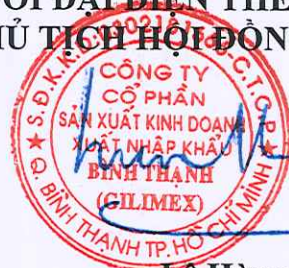 ĐẠI DIỆN THE
CHỦ TỊCH HỘI ĐỒN
CÔNG TY
CỔ PHẦN
SẢN XUẤT KINH DOANH
XUẤT NHẬP KHẨU
BÌNH THẠNH
(GILIMEX)
Q. BÌNH THẠNH TP. HỒ CHÍ MINH